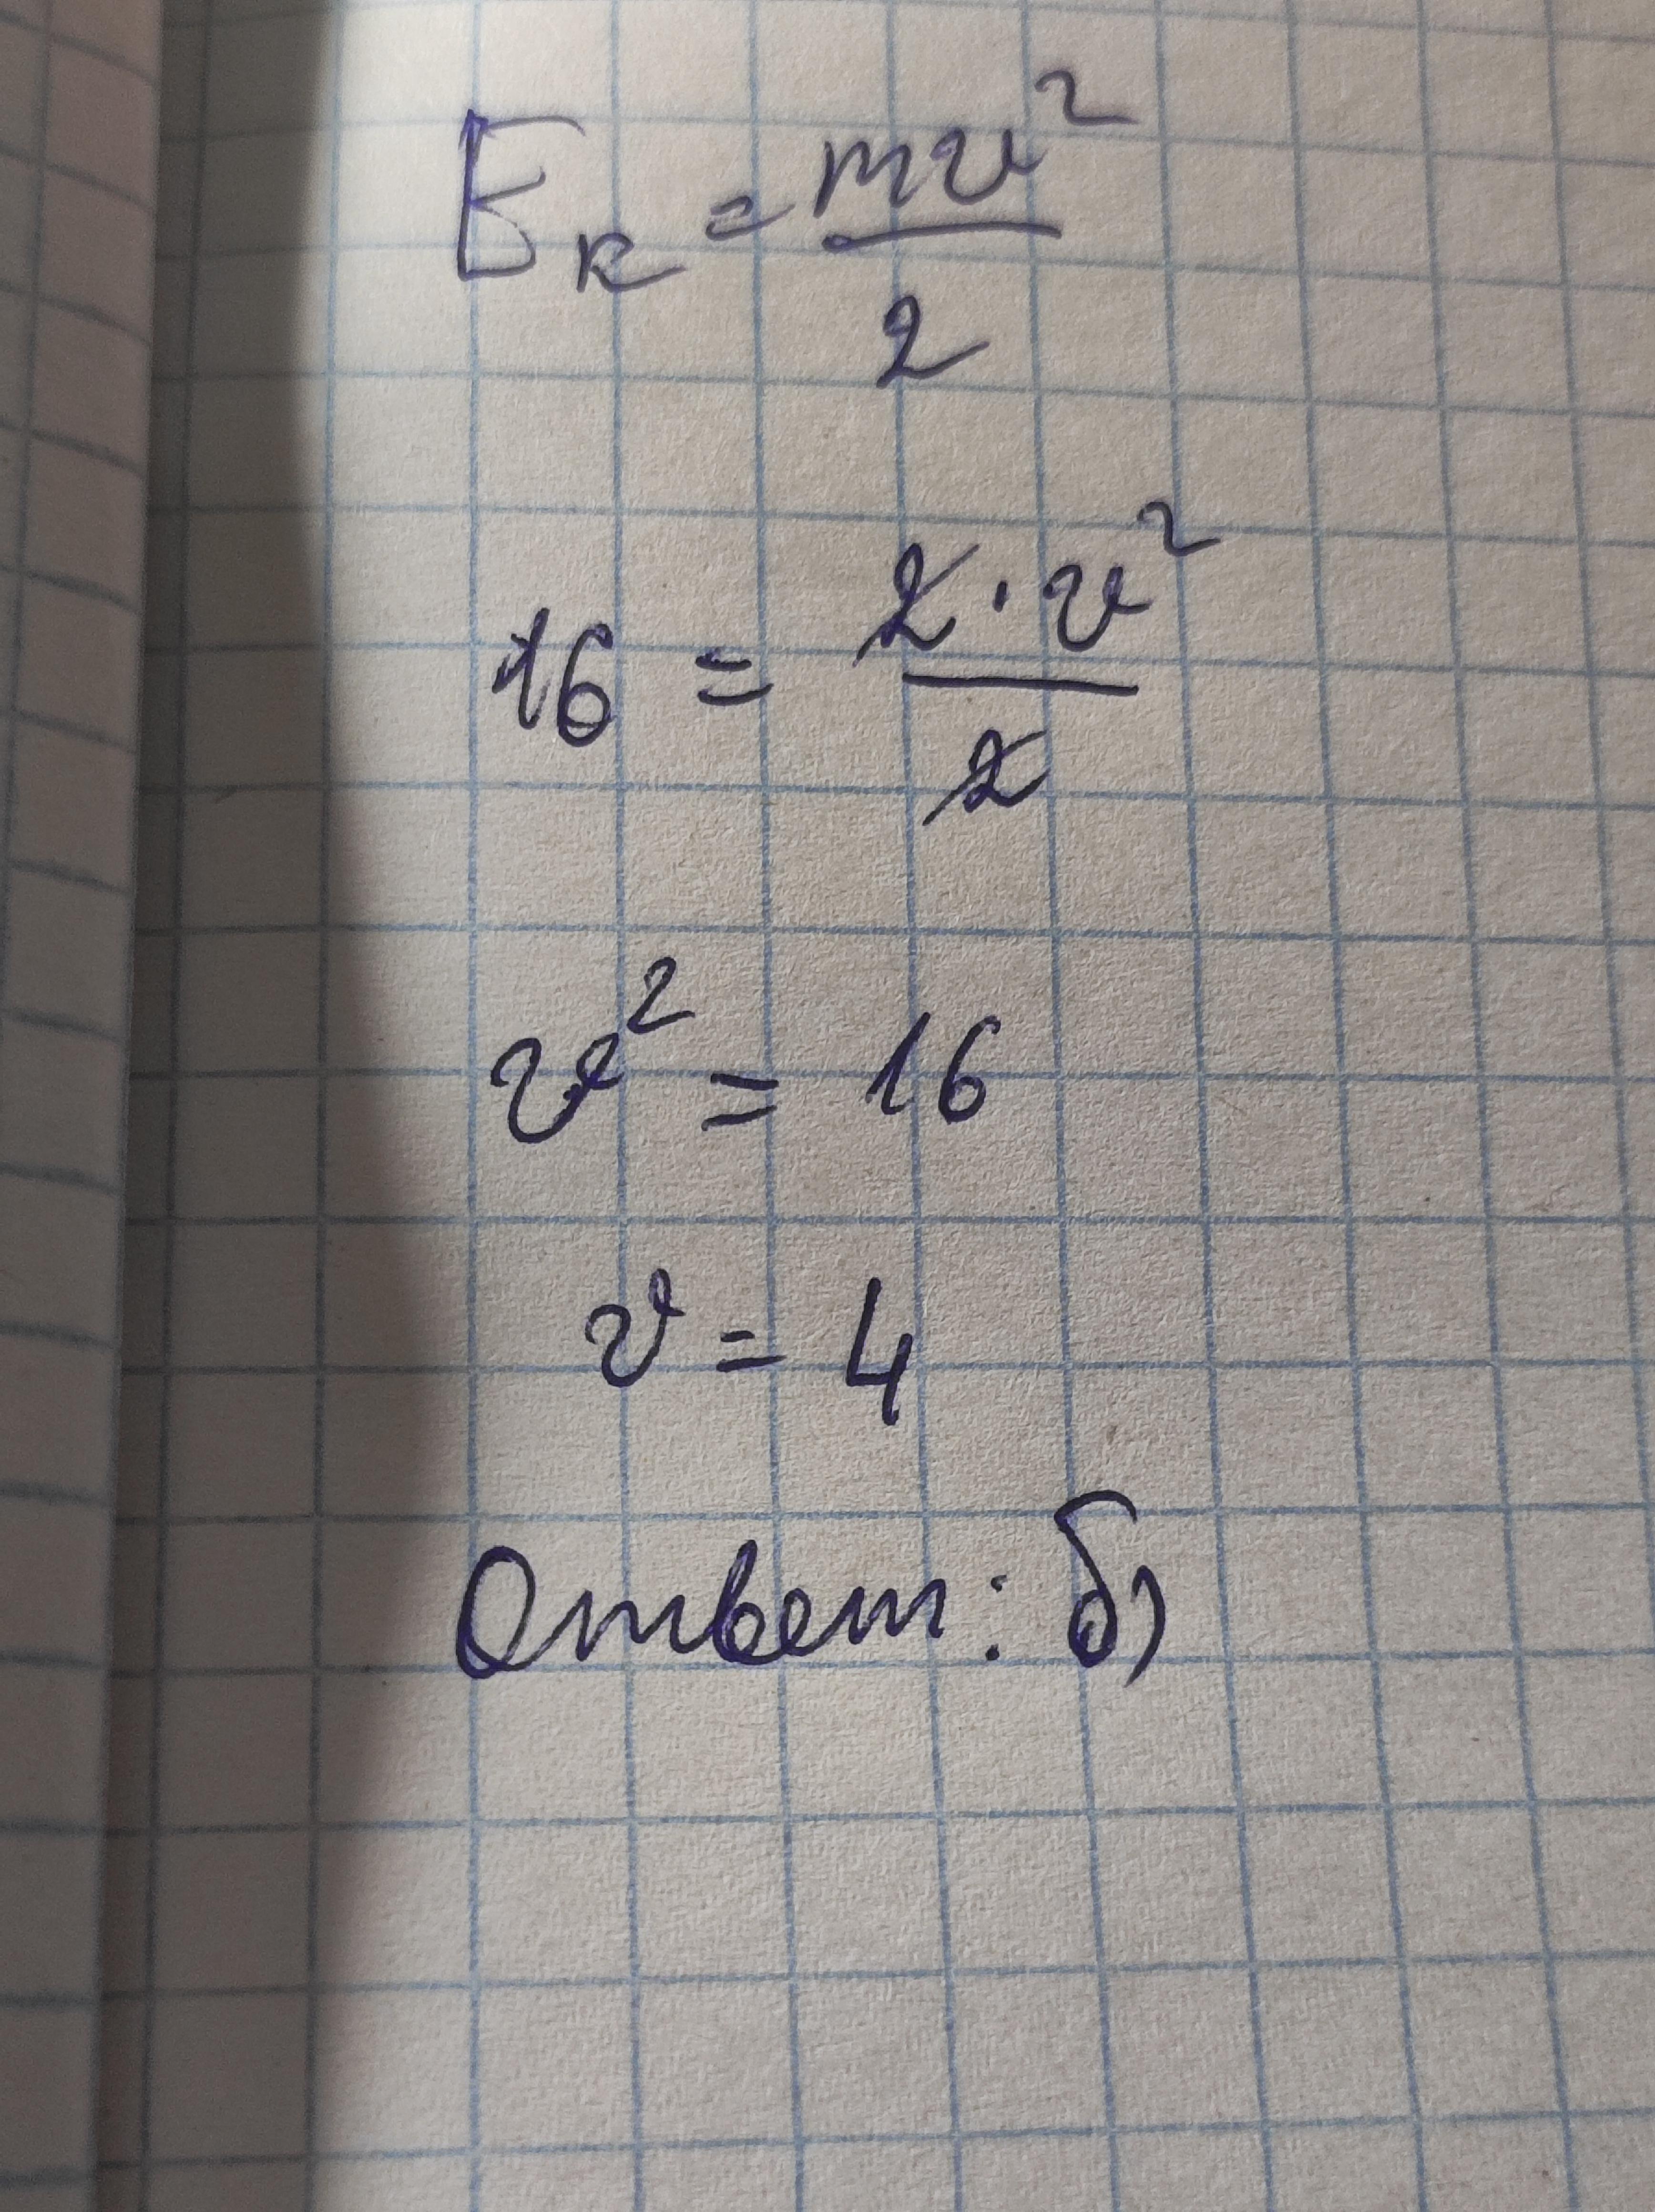 Eк = mv²/2
16 = 2·v²/2
v² = 16
v = 4
Ответ: б)